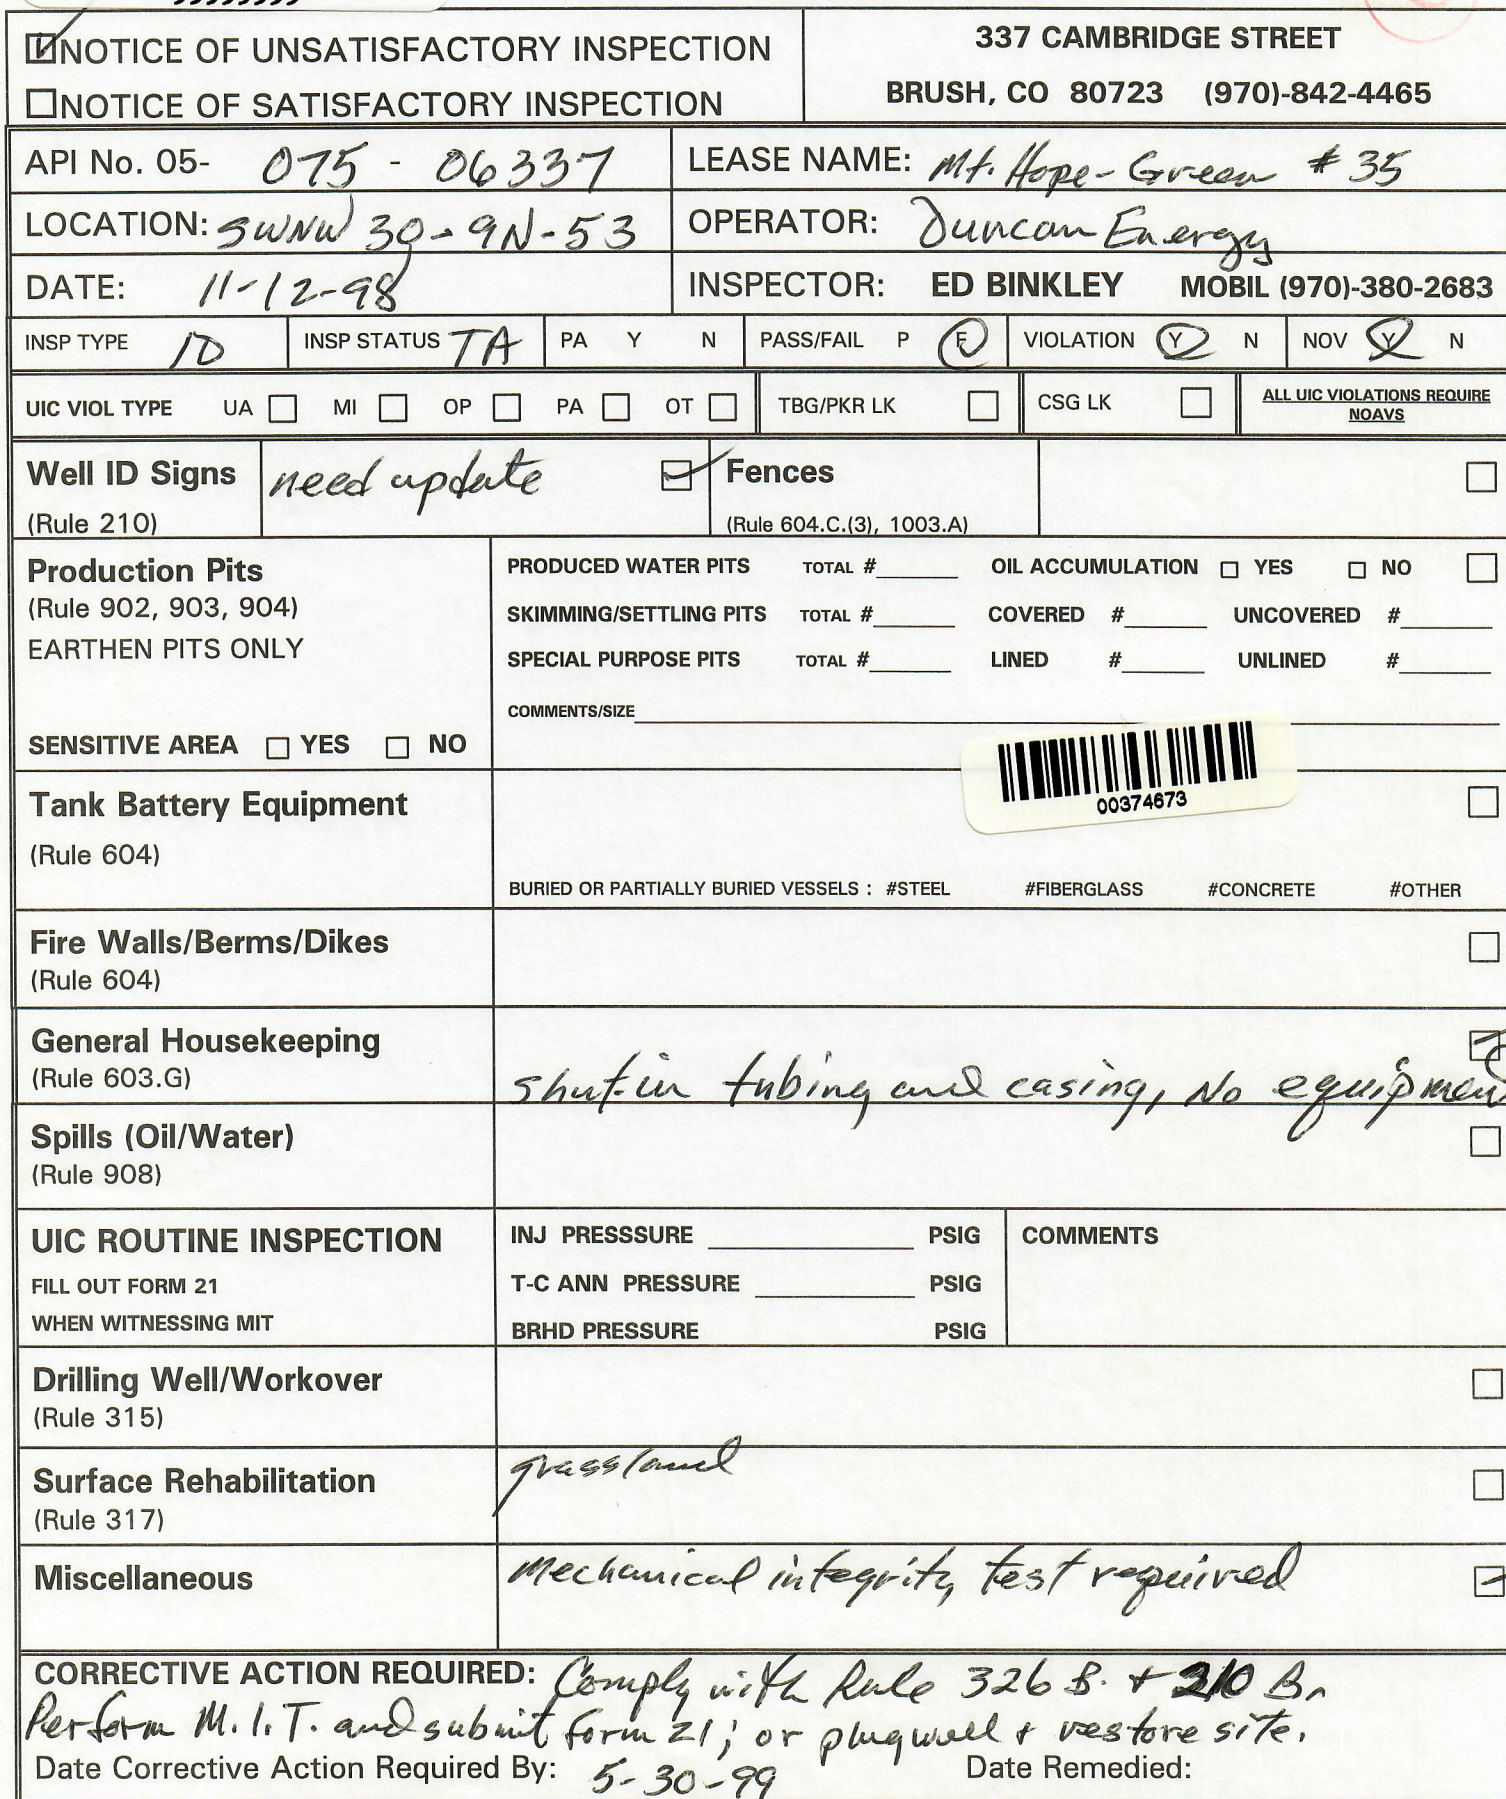 NOTICE OF UNSATISFACTORY INSPECTION
337 CAMBRIDGE STREET
NOTICE OF SATISFACTORY INSPECTION
BRUSH, CO 80723 (970)-842-4465
API No. 05- 075 - 06337
LEASE NAME: Mt. Hope-Green #35
LOCATION: SWNW 30-9N-53
OPERATOR: Duncan Energy
DATE: 11-12-98
INSPECTOR: ED BINKLEY MOBIL (970)-380-2683
INSP TYPE ID INSP STATUS TA PA Y N PASS/FAIL P F VIOLATION Y N NOV Y N
UIC VIOL TYPE UA MI OP PA OT TBG/PKR LK CSG LK ALL UIC VIOLATIONS REQUIRE
NOAVS
Well ID Signs need update Fences
(Rule 210) (Rule 604.C.(3), 1003.A)
Production Pits
(Rule 902, 903, 904)
EARTHEN PITS ONLY
SENSITIVE AREA YES NO
PRODUCED WATER PITS TOTAL # OIL ACCUMULATION YES NO
SKIMMING/SETTLING PITS TOTAL # COVERED # UNCOVERED #
SPECIAL PURPOSE PITS TOTAL # LINED # UNLINED #
COMMENTS/SIZE
00374673
Tank Battery Equipment
(Rule 604)
BURIED OR PARTIALLY BURIED VESSELS : #STEEL #FIBERGLASS #CONCRETE #OTHER
Fire Walls/Berms/Dikes
(Rule 604)
General Housekeeping
(Rule 603.G)
shut-in tubing and casing, No equipment
Spills (Oil/Water)
(Rule 908)
UIC ROUTINE INSPECTION
FILL OUT FORM 21
WHEN WITNESSING MIT
INJ PRESSSURE PSIG
T-C ANN PRESSURE PSIG
BRHD PRESSURE PSIG
COMMENTS
Drilling Well/Workover
(Rule 315)
Surface Rehabilitation
(Rule 317)
grassland
Miscellaneous
Mechanical integrity test required
CORRECTIVE ACTION REQUIRED: Comply with Rule 326 B. + 210 B.
Perform M.I.T. and submit form 21; or plug well + restore site.
Date Corrective Action Required By: 5-30-99 Date Remedied: